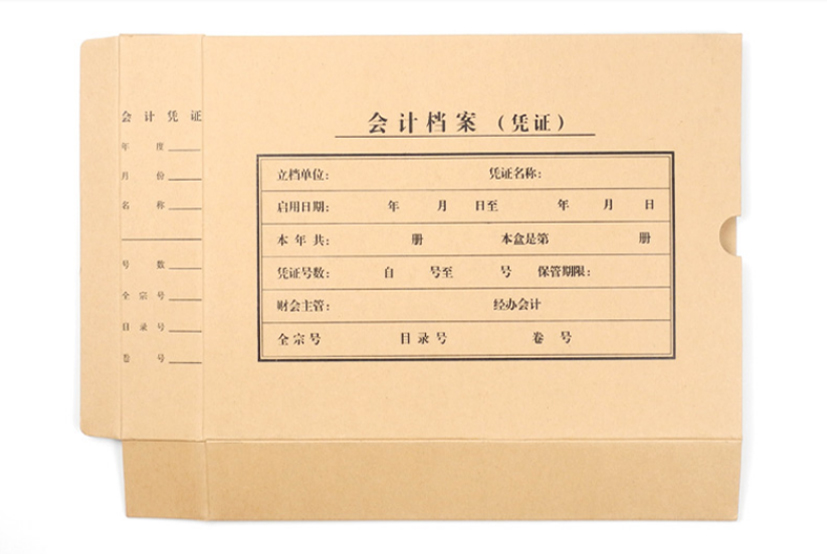 会计凭证
年 度
月 份
名 称
号 数
全宗号
目录号
卷 号
会计档案（凭证）
立档单位： 凭证名称：
启用日期： 年 月 日至 年 月 日
本年共： 册 本盒是第 册
凭证号数： 自 号至 号 保管期限：
财会主管： 经办会计
全宗号 目录号 卷号